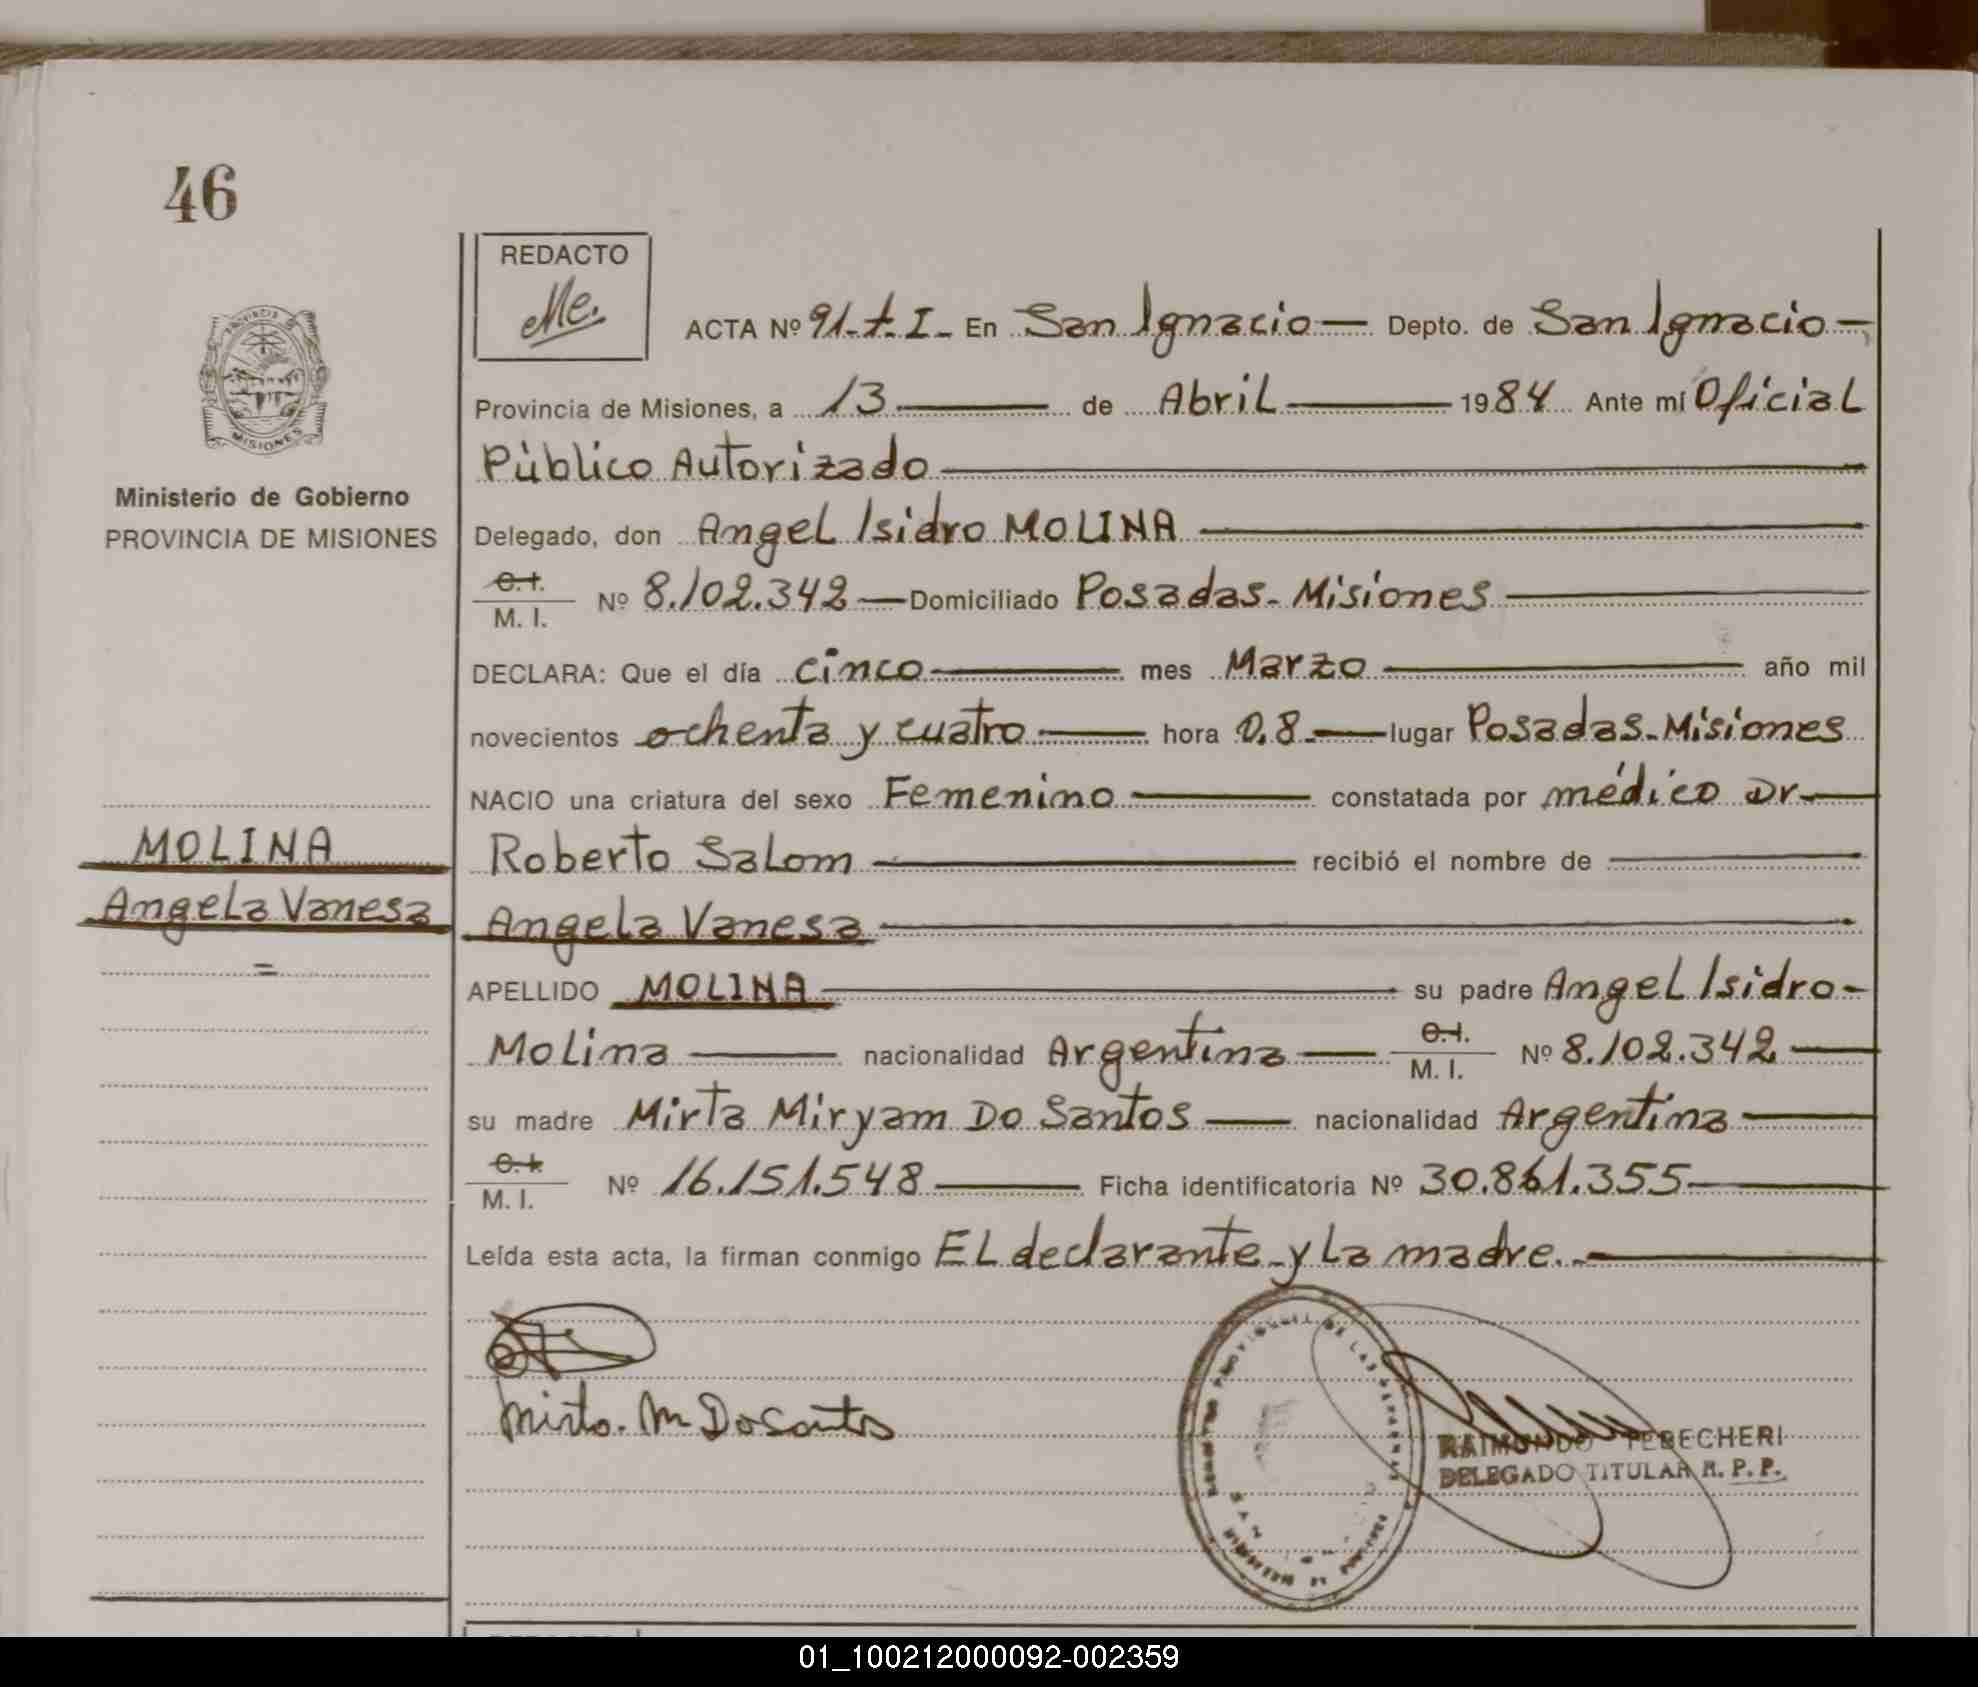 46
REDACTO
Me.
ACTA Nº 91-t.I- En San Ignacio Depto. de San Ignacio
Provincia de Misiones, a 13 de Abril 1984 Ante mí Oficial
Público Autorizado
Delegado, don Angel Isidro MOLINA
C.I.
M. I. Nº 8.102.342 Domiciliado Posadas-Misiones
DECLARA: Que el día cinco mes Marzo año mil
novecientos ochenta y cuatro hora 0.8 lugar Posadas-Misiones
NACIO una criatura del sexo Femenino constatada por médico Dr
Roberto Salom recibió el nombre de
Angela Vanesa
APELLIDO MOLINA su padre Angel Isidro
Molina nacionalidad Argentina C.I.
M. I. Nº 8.102.342
su madre Mirta Miryam Do Santos nacionalidad Argentina
C.I.
M. I. Nº 16.151.548 Ficha identificatoria Nº 30.861.355
Leída esta acta, la firman conmigo El declarante y la madre.
Mirta. M DoSantos
RAIMUNDO TEBECHERI
DELEGADO TITULAR R. P. P.
PROVINCIA DE
MISIONES
Ministerio de Gobierno
PROVINCIA DE MISIONES
MOLINA
Angela Vanesa
=
01_100212000092-002359